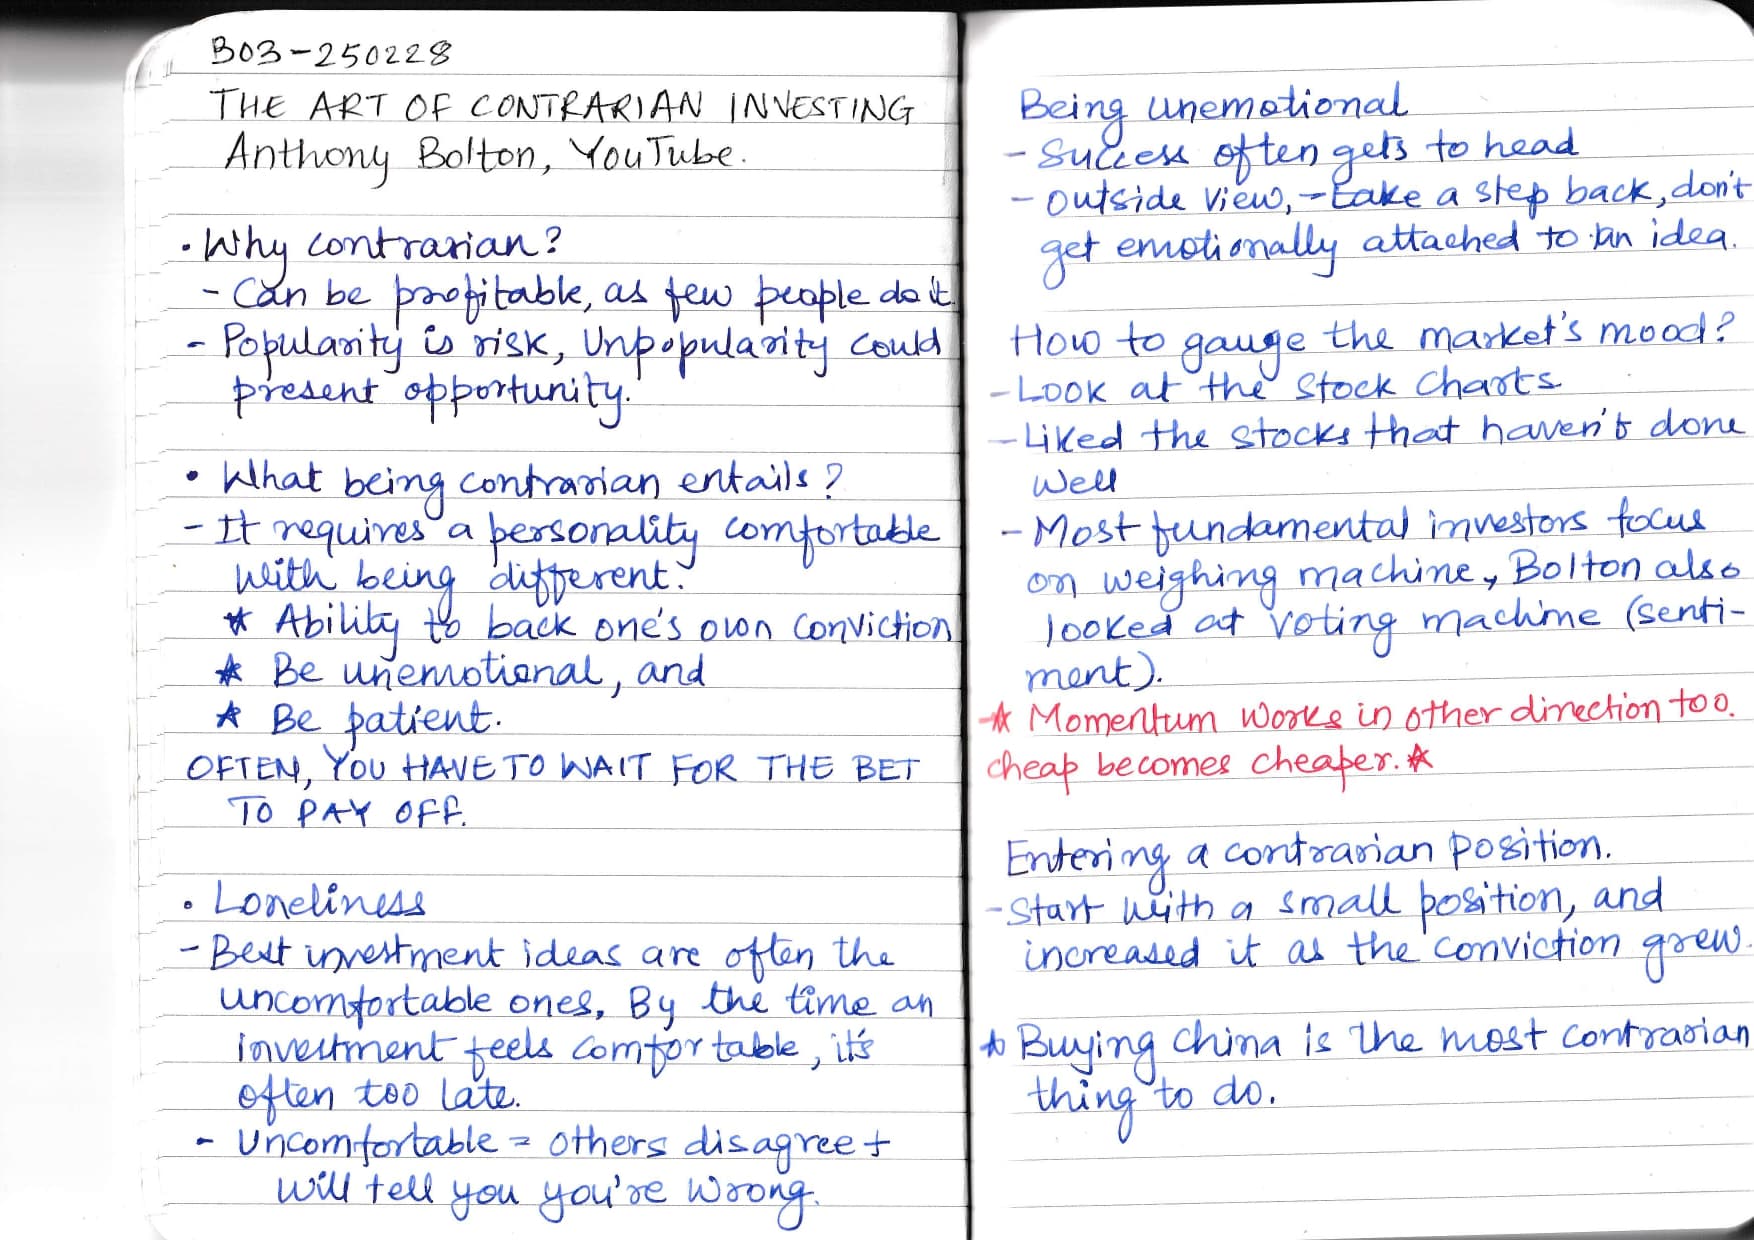 B03-250228
THE ART OF CONTRARIAN INVESTING
Anthony Bolton, YouTube.
• Why contrarian?
- Can be profitable, as few people do it.
- Popularity is risk, Unpopularity could
present opportunity.
• What being contrarian entails?
- It requires a personality comfortable
with being different.
* Ability to back one's own conviction
* Be unemotional, and
* Be patient.
OFTEN, YOU HAVE TO WAIT FOR THE BET
TO PAY OFF.
• Loneliness
- Best investment ideas are often the
uncomfortable ones, By the time an
investment feels comfortable, it's
often too late.
- Uncomfortable = others disagree +
will tell you you're wrong.
Being unemotional
- Success often gets to head
- outside view, - take a step back, don't
get emotionally attached to an idea.
How to gauge the market's mood?
- Look at the stock charts
- Liked the stocks that haven't done
well
- Most fundamental investors focus
on weighing machine, Bolton also
looked at voting machine (senti-
ment).
* Momentum works in other direction too.
cheap becomes cheaper. *
Entering a contrarian position.
- Start with a small position, and
increased it as the conviction grew.
* Buying China is the most contrarian
thing to do.